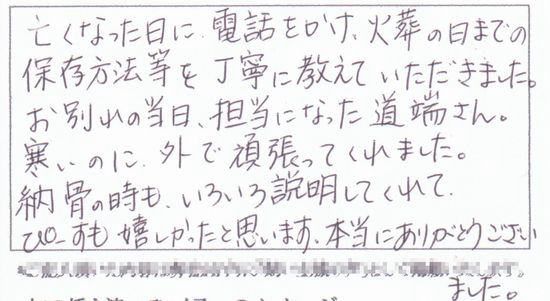 亡くなった日に、電話をかけ、火葬の日までの
保存方法等を丁寧に教えていただきました。
お別れの当日、担当になった道端さん。
寒いのに、外で頑張ってくれました。
納骨の時も、いろいろ説明してくれて、
ぴーすも嬉しかったと思います、本当にありがとうござい
ました。